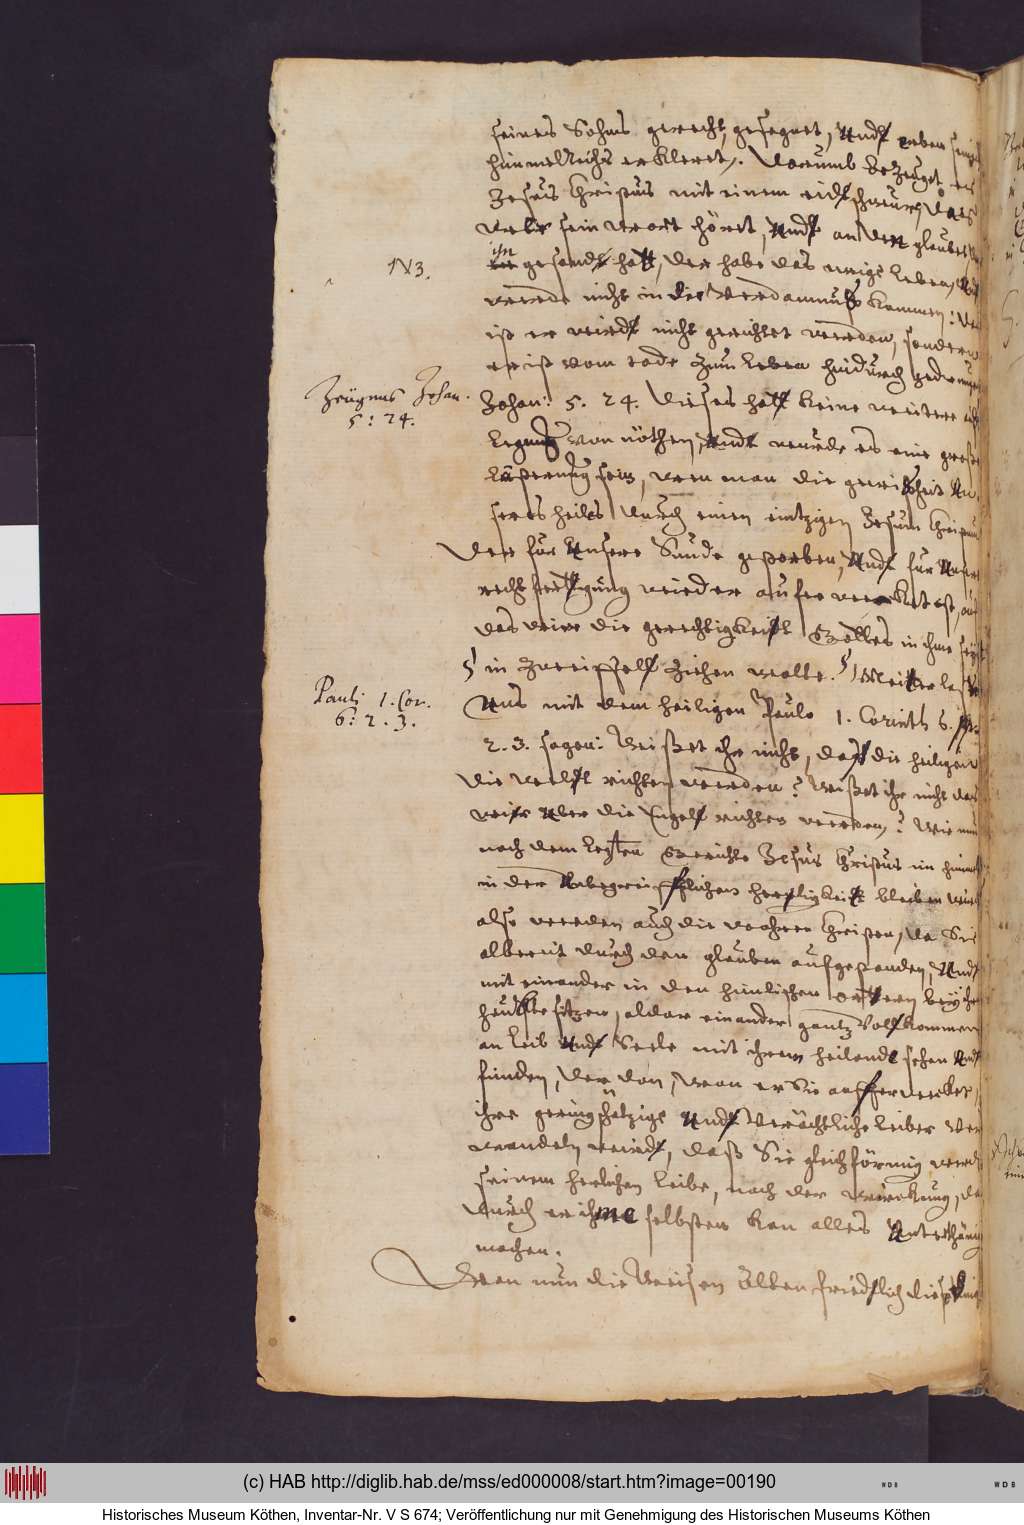 seines Sohns gerecht, gesegnet, Undt
himmelReichs erkleret. Darumb bezeuget es
Jesus Christus mit einem eidtschwur, das
wehr sein wortt höret, Undt an den glaubet
ihn gesandt hatt, der habe das ewige Leben,
NB.
werde nicht in die Verdamnuß kommen:
ist er wirdt nicht gerichtet werden, sondern
er ist vom tode zum Leben hindurch gedrungen
Zeügnus Johan.
5: 24.
Johan: 5. 24. Dieses hatt keine weitere
von nöthen, Undt würde es eine große
Lästerung sein, wen man die gewisheit Un-
sers heiles durch einen eintzigen Jesum Christum
Der für Unsere Sünde gestorben, Undt für Unsere
rechtfertigung wieder auferwecket ist, auf
das wir die gerechtigkeitt Gottes in ihme
in Zweiffell ziehen wolte. Weitter
Pauli 1. Cor.
6: 2. 3.
Uns mit dem heiligen Paulo 1. Corinth 6.
2. 3. sagen: Wißet ihr nicht, daß die heiligen
die weltt richten werden? Wißet ihr nicht das
wir Uber die Engell richten werden? Wie nun
nach dem letzten Gerichte Jesus Christus im himmel
in der Unbegreifflichen herligkeitt bleiben wird
also werden auch die wahren Christen, da Sie
albereit durch den glauben auferstanden, Undt
mit einander in den himlischen örttern
sitzen, aldar einander gantz Volkommen
an Leib Undt Seele mit ihrem heilandt sehen Undt
finden, der dan, wan er Sie aufferwecket,
ihre geringschätzige Undt Verächtliche Leiber Ver-
wandeln wirdt, daß Sie gleichförmig werden
seinem herlichen Leibe, nach der würckung, da
durch er ihme selbsten kan alles Unterthänig
machen.
Wan nun die Weisen Alten friedtlich
(c) HAB http://diglib.hab.de/mss/ed000008/start.htm?image=00190
WDB
WDB
Historisches Museum Köthen, Inventar-Nr. V S 674; Veröffentlichung nur mit Genehmigung des Historischen Museums Köthen